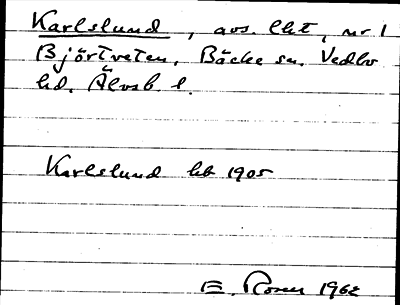 Karlslund, avs. lht, nr 1
Björtveten, Bäcke sn. Vedbo
hd. Älvsb l.
Karlslund hb 1905
E. Rosen 1962